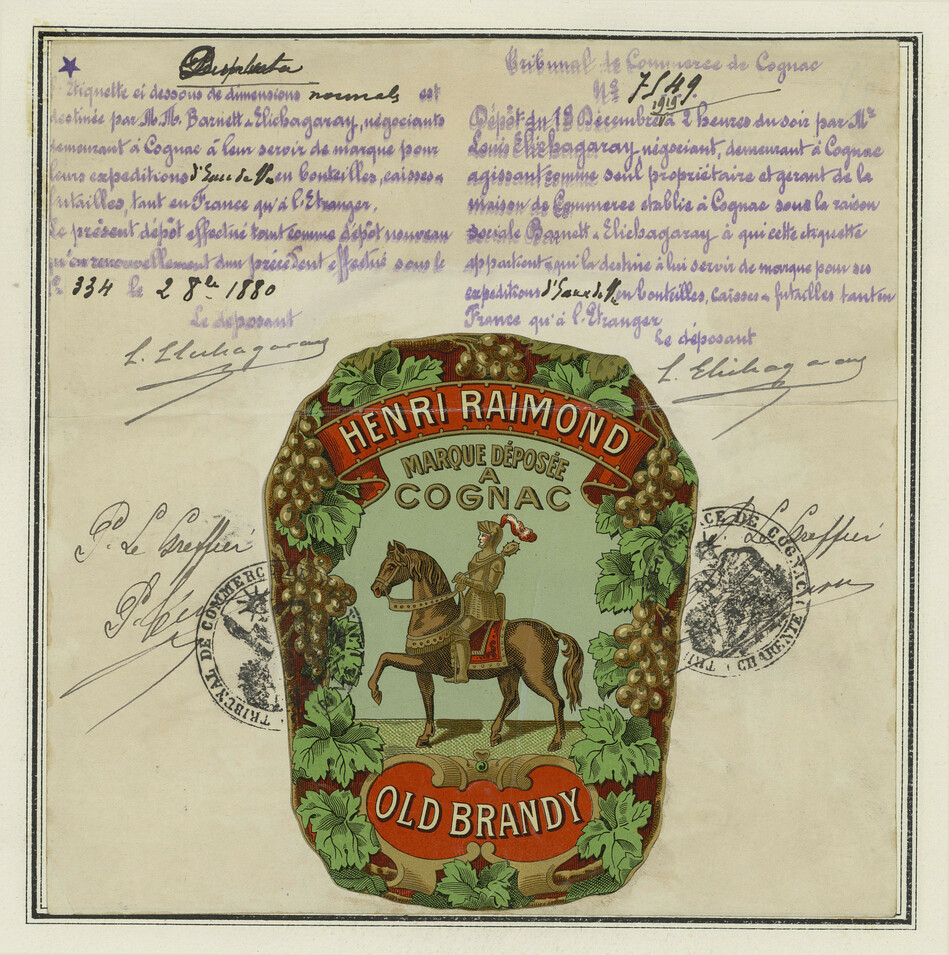 Duplicata
L'Etiquette ci dessous de dimensions normales est
destinée par M.M. Barnett & Elichagaray, négociants
demeurant à Cognac à leur servir de marque pour
leurs expeditions d'Eaux de Vie en bouteilles, caisses &
futailles, tant en France qu'à l'Etranger.
Le présent dépôt effectué tant comme dépôt nouveau
qu'en renouvellement d'un précédent effectué sous le
No 334 le 2 8bre 1880
Le déposant
L. Elichagaray
P. Le Greffier
Tribunal de Commerce de Cognac
No 7549.
1919
Dépôt du 13 Décembre à 2 heures du soir par Mr
Louis Elichagaray, négociant, demeurant à Cognac
agissant comme seul propriétaire et gerant de la
maison de Commerce etablie à Cognac sous la raison
sociale Barnett & Elichagaray à qui cette etiquette
appartient & qui la destine à lui servir de marque pour ses
expeditions d'Eaux de Vie en bouteilles, caisses & futailles tant en
France qu'à l'Etranger
Le déposant
L. Elichagaray
P. Le Greffier
HENRI RAIMOND
MARQUE DÉPOSÉE
A
COGNAC
OLD BRANDY
TRIBUNAL DE COMMERCE
CE DE COGNAC
CHARENTE